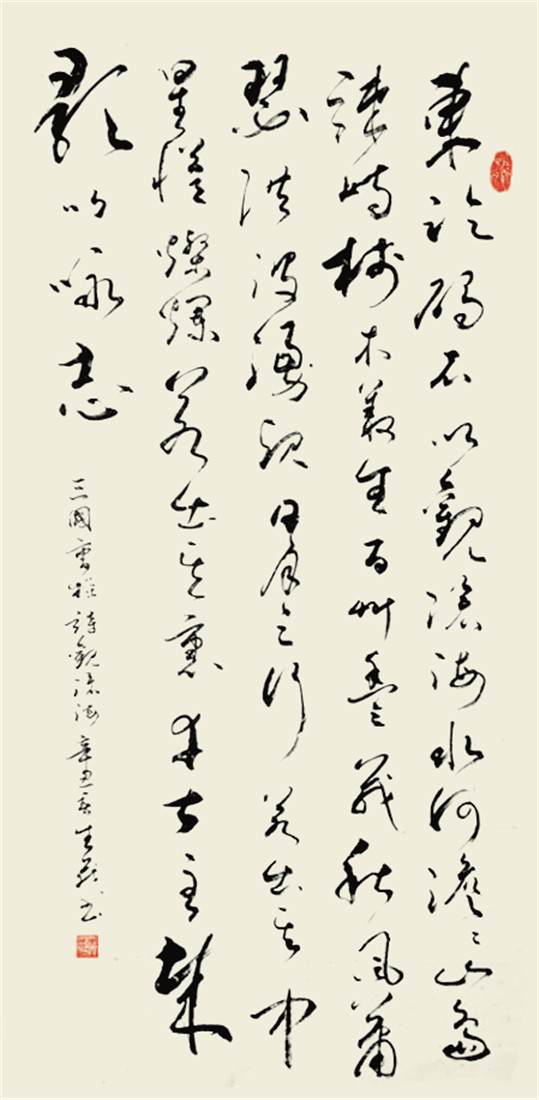 東臨碣石以觀滄海水何澹々山島
竦峙樹木叢生百艸豐茂秋風蕭
瑟洪波湧起日月之行若出其中
星漢燦爛若出其裏幸甚至哉
歌以咏志
三國曹操詩觀滄海辛丑书